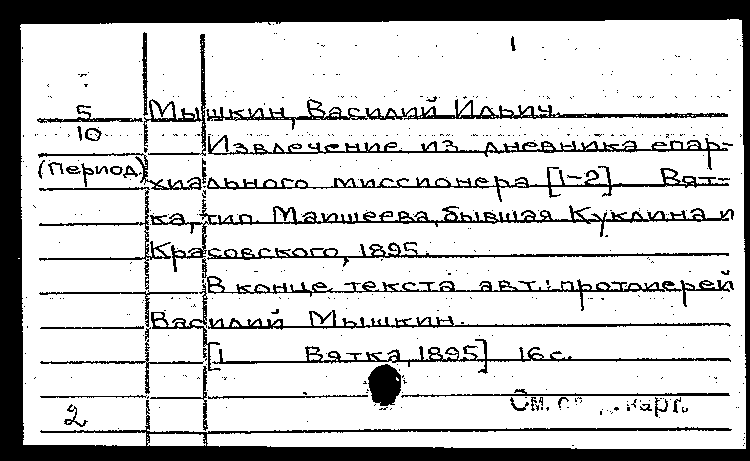 1
5 Мышкин, Василий Ильич.
10 Извлечение из дневника епар-
(период) хиального миссионера [1-2]. Вят-
ка, тип. Маишеева, бывшая Куклина и
Красовского, 1895.
В конце текста авт.: протоиерей
Василий Мышкин.
[1 Вятка, 1895] 16 с.
2 См. карт.